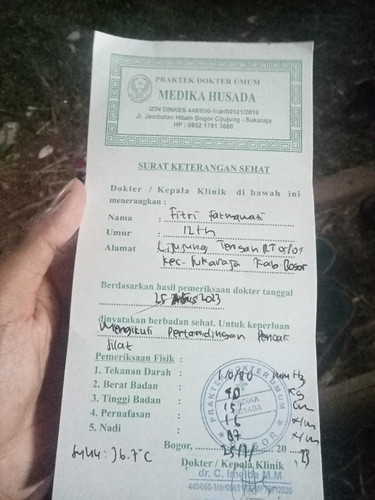 PRAKTEK DOKTER UMUM
MEDIKA HUSADA
IZIN DINKES
Jl. Jembatan Hitam Bogor Cijujung - Sukaraja
HP : 0852 1791
SURAT KETERANGAN SEHAT
Dokter / Kepala Klinik di bawah ini
menerangkan :
Nama : Fitri
Umur : 12 th
Alamat Tengah RT
Kec. Sukaraja Kab. Bogor
Berdasarkan hasil pemeriksaan dokter tanggal
25 2023
dinyatakan berbadan sehat. Untuk keperluan
Mengikuti Pertandingan Pencak
Silat
Pemeriksaan Fisik :
1. Tekanan Darah : 110/80 mmHg
2. Berat Badan : Kg
3. Tinggi Badan : Cm
4. Pernafasan : 16 x/m
5. Nadi : 87 x/m
Suhu : 36.7°C
Bogor, 25/ 20 23
Dokter / Kepala Klinik
dr. C. M.M